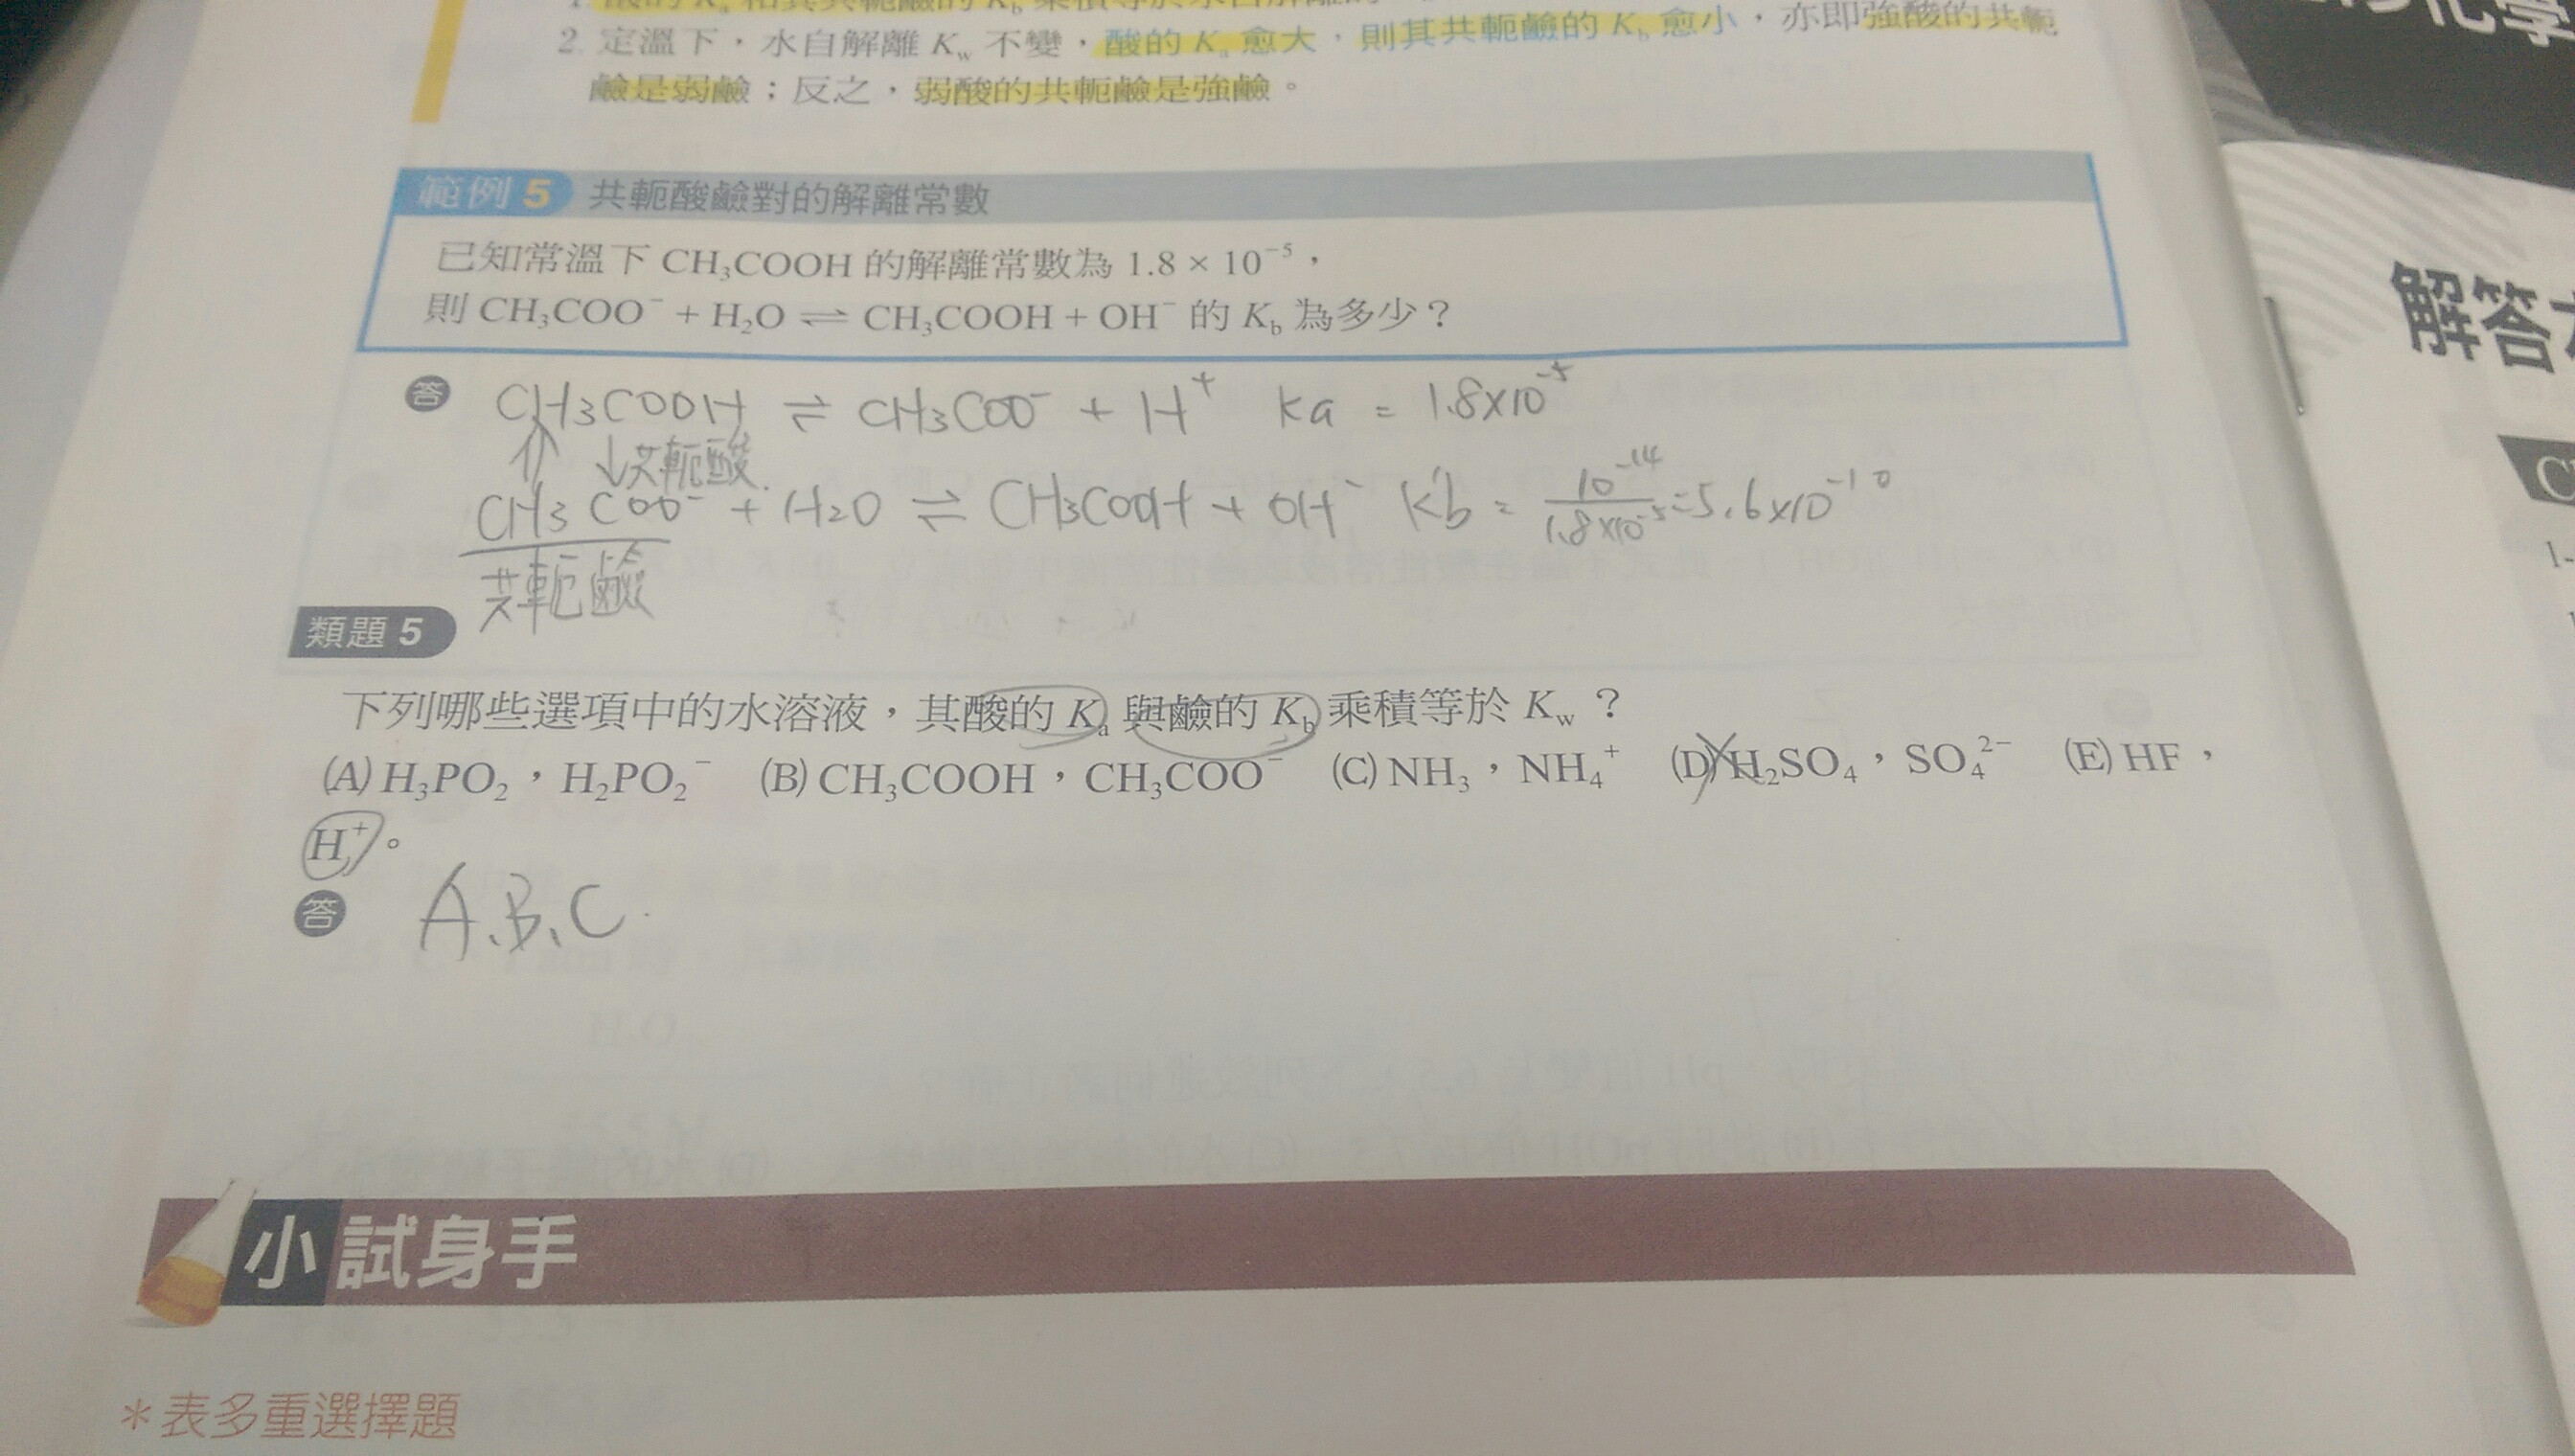 2. 定溫下，水自解離 Kw 不變，酸的 Ka 愈大，則其共軛鹼的 Kb 愈小，亦即強酸的共軛
鹼是弱鹼；反之，弱酸的共軛鹼是強鹼。
範例 5 共軛酸鹼對的解離常數
已知常溫下 CH₃COOH 的解離常數為 1.8 × 10⁻⁵，
則 CH₃COO⁻ + H₂O ⇌ CH₃COOH + OH⁻ 的 Kb 為多少？
答 CH3COOH ⇌ CH3COO⁻ + H⁺ Ka = 1.8×10⁻⁵
↓共軛酸
CH3COO⁻ + H2O ⇌ CH3COOH + OH⁻ Kb = 10⁻¹⁴/1.8×10⁻⁵ = 5.6×10⁻¹⁰
共軛鹼
類題 5
下列哪些選項中的水溶液，其酸的 Ka 與鹼的 Kb 乘積等於 Kw？
(A) H₃PO₂，H₂PO₂⁻ (B) CH₃COOH，CH₃COO⁻ (C) NH₃，NH₄⁺ (D) H₂SO₄，SO₄²⁻ (E) HF，
H⁺。
答 A、B、C
小試身手
＊表多重選擇題
解答